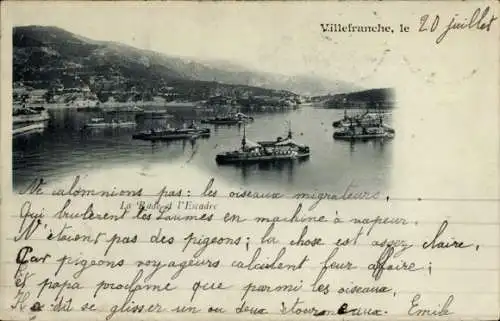 Villefranche, le 20 juillet
La Rade et l'Escadre
Ne calomnions pas: les oiseaux migrateurs,
Qui brûlèrent les Saumes en machine à vapeur,
N'étaient pas des pigeons; la chose est assez claire,
Car pigeons voyageurs calculent leur affaire;
Et papa proclame que parmi les oiseaux,
se glisser un ou deux étourneaux. Emile